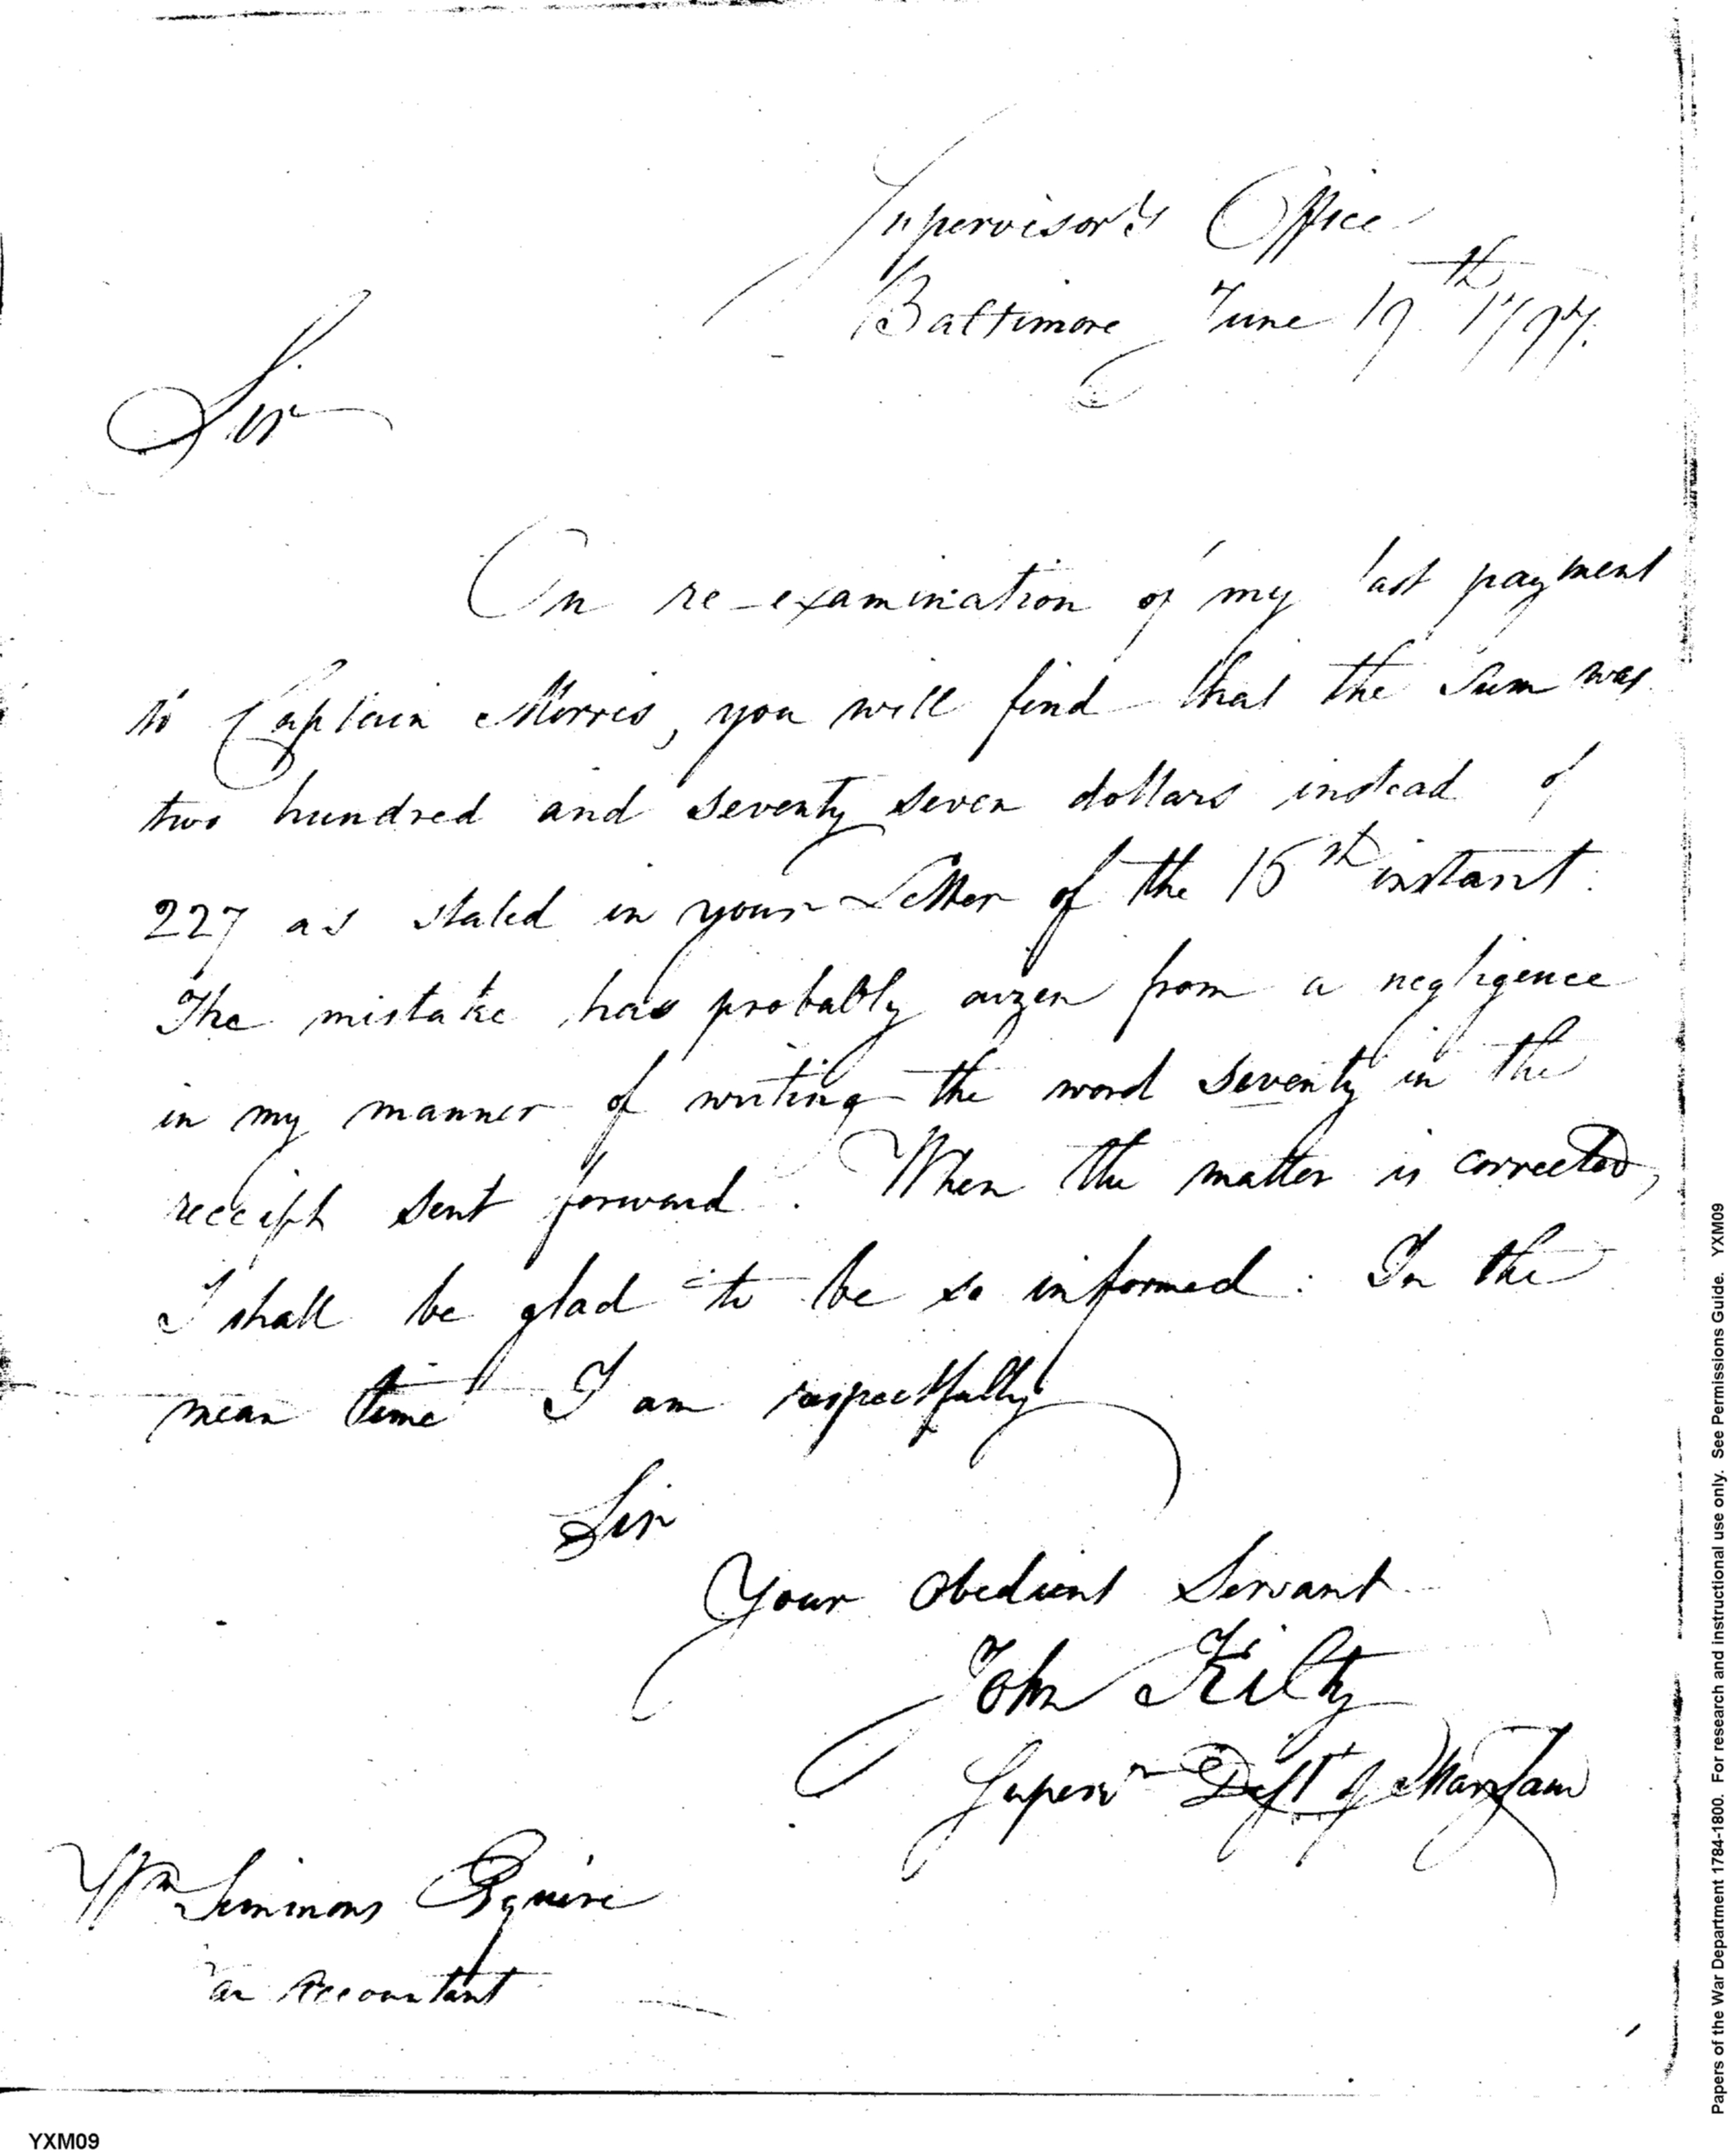 Supervisor's Office
Baltimore June 19th 1797.
Sir
On re-examination of my last payment
to Captain Morris, you will find that the Sum was
two hundred and seventy seven dollars instead of
227 as stated in your Letter of the 15th instant.
The mistake has probably arizen from a negligence
in my manner of writing the word seventy in the
receipt sent forward. When the matter is corrected,
I shall be glad to be so informed: In the
mean time I am respectfully
Sir
Your obedient Servant
John Kilty
Superv.r Dist of Maryland
Wm Simmons Esquire
Accountant
YXM09
Papers of the War Department 1784-1800. For research and instructional use only. See Permissions Guide. YXM09